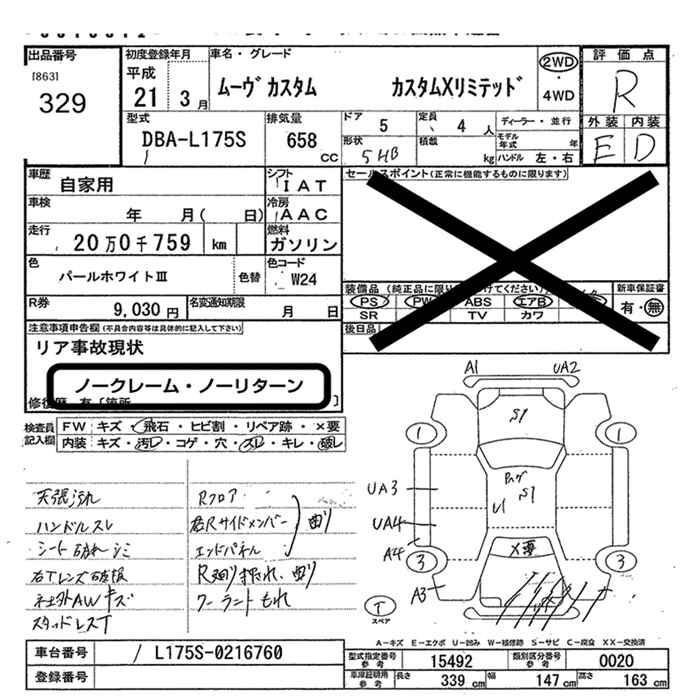 出品番号 初度登録年月 車名・グレード 評価点
[863] 平成
329 21 3月 ムーヴカスタム カスタムXリミテッド 2WD・4WD R
型式 排気量 ドア 定員 ディーラー・並行 外装 内装
DBA-L175S 658cc 5 4人 モデル年式 年 E D
形状 積載
5HB kg ハンドル 左・右
車歴 自家用 シフト IAT セールスポイント(正常に機能するものに限ります)
車検 年 月( 日) 冷房 AAC
走行 20万0千759 km 燃料 ガソリン
色 パールホワイトⅢ 色替 色コード W24
装備品(純正品に限り けてください) 新車保証書
PS PW ABS エアB 有・無
SR TV カワ
R券 9,030円 名変通知期限 月 日
後日品
注意事項申告欄(不具合内容等は具体的に記入して下さい)
リア事故現状
ノークレーム・ノーリターン
修復歴 有[箇所 ]
検査員記入欄 FW キズ・飛石・ヒビ割・リペア跡・×要
内装 キズ・汚レ・コゲ・穴・スレ・キレ・破レ
天張汚れ
ハンドルスレ
シート破れシミ
右Tレンズ破損
社外AWキズ
スタッドレスT
Rフロア
左右Rサイドメンバー 曲り
エンドパネル
R廻り押され、曲り
クーラントもれ
A1 UA2
S1
1 1
Pガラ S1
UA3 U1
UA4
A4 ×要
3 3
A3
T
スペア
A-キズ E-エクボ U-凹み W-補修跡 S-サビ C-腐食 XX-交換済
車台番号 L175S-0216760
型式指定番号 参考 15492 類別区分番号 参考 0020
登録番号
車庫証明用 参考 長さ 339cm 幅 147cm 高さ 163cm